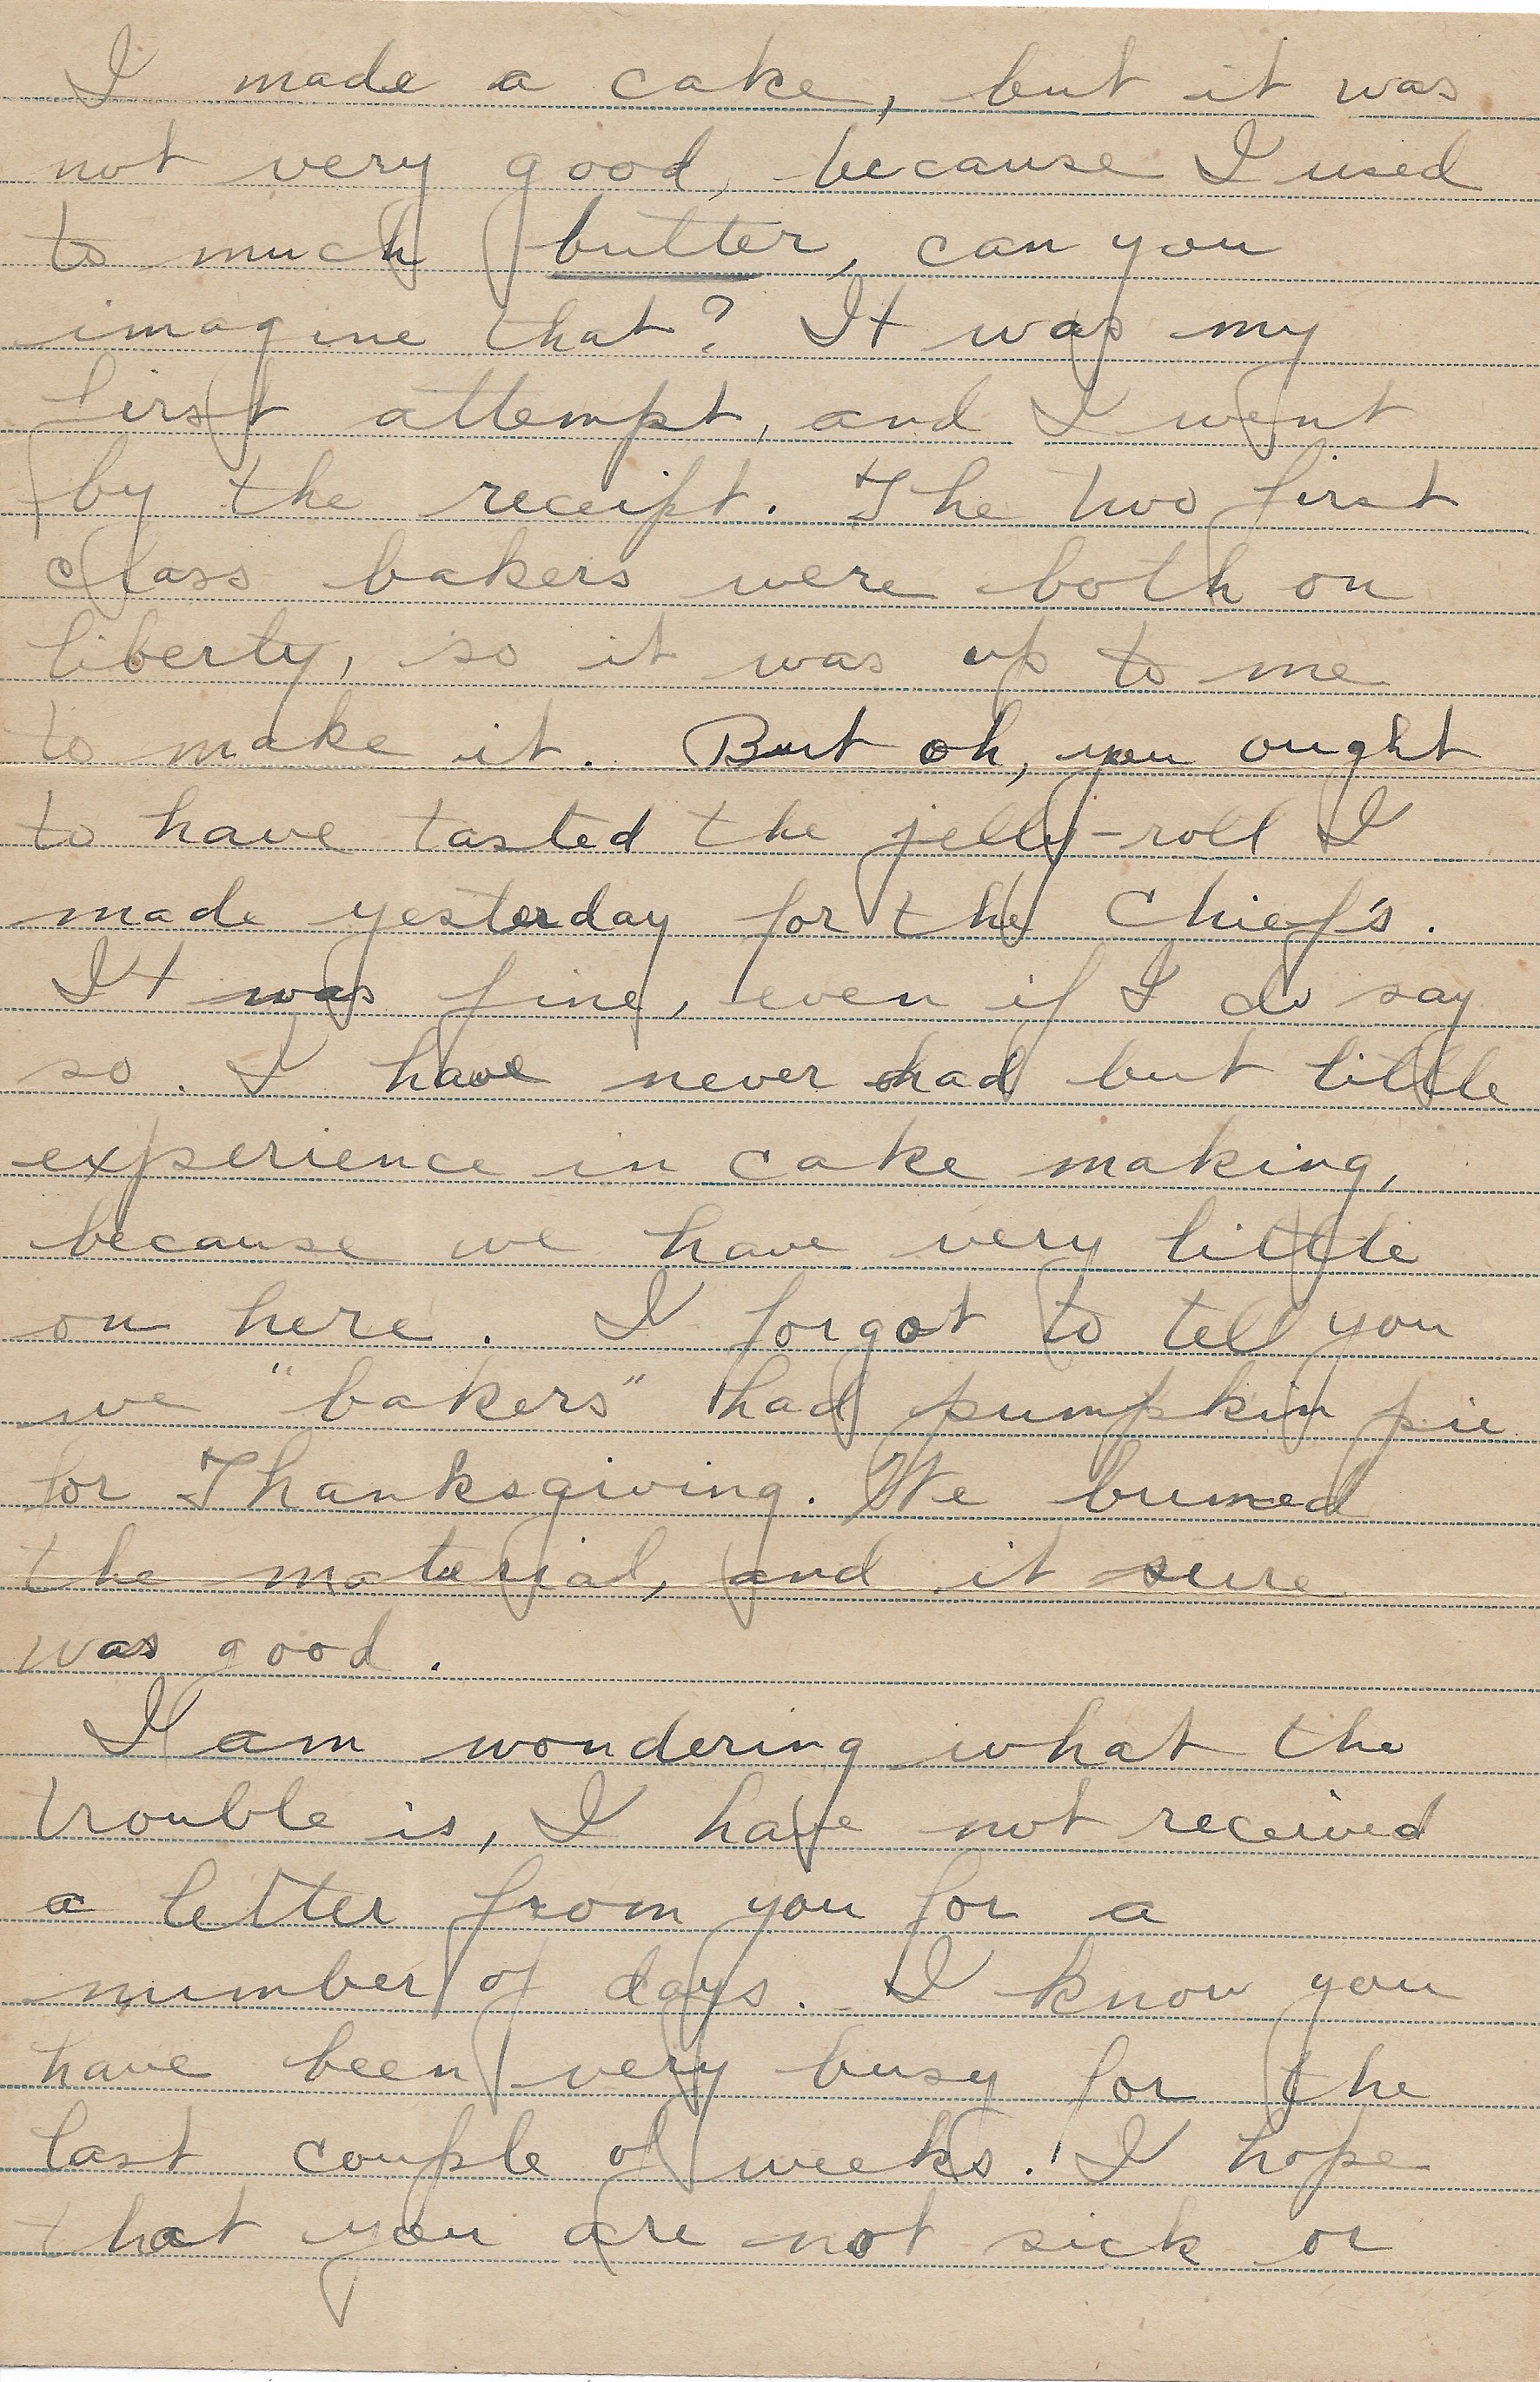 I made a cake, but it was
not very good, because I used
to much butter, can you
imagine that? It was my
first attempt, and I went
by the receipt. The two first
class bakers were both on
liberty, so it was up to me
to make it. But oh, you ought
to have tasted the jelly-roll I
made yesterday for the Chief's.
It was fine, even if I do say
so. I have never had but little
experience in cake making,
because we have very little
on here. I forgot to tell you
we "bakers" had pumpkin pie
for Thanksgiving. We bumed
the material, and it sure
was good.
I am wondering what the
trouble is, I have not received
a letter from you for a
number of days. I know you
have been very busy for the
last couple of weeks. I hope
that you are not sick or